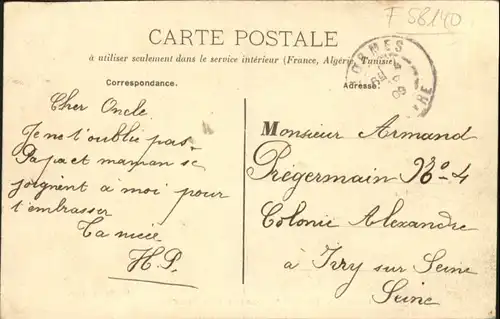 F 58140
CARTE POSTALE
à utiliser seulement dans le service intérieur (France, Algérie, Tunisie)
Correspondance.
Adresse
ORMES
Cher Oncle
Je ne t'oublie pas
Papa et maman se
joignent à moi pour
t'embrasser
Ta nièce
H.P.
Monsieur Armand
Prégermain No 4
Colonie Alexandre
à Ivry sur Seine
Seine